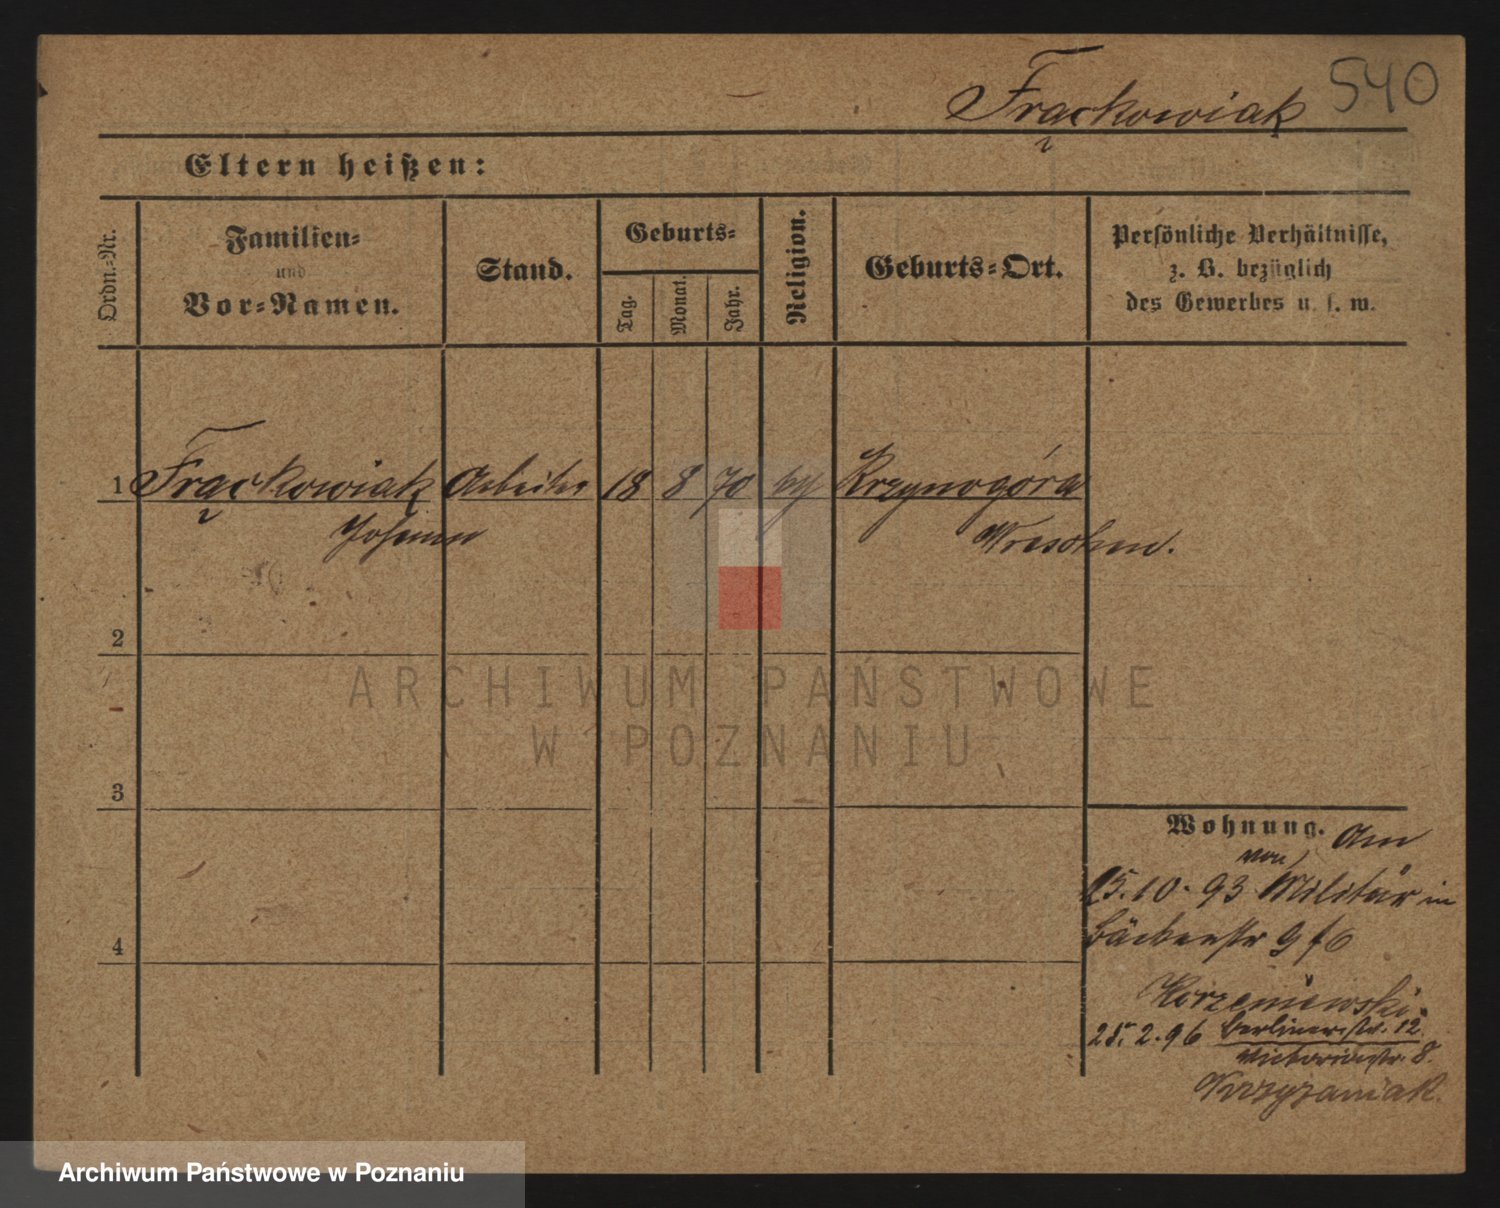 Frąckowiak 540
Eltern heißen:
Ordn.-Nr.
Familien-
und
Vor-Namen.
Stand.
Geburts-
Tag.
Monat.
Jahr.
Religion.
Geburts-Ort.
Persönliche Verhältnisse,
z. B. bezüglich
des Gewerbes u. s. w.
1 Frąckowiak Arbeiter 18 8 70 Krzynogóra
Johann Wreschen.
2
3
4
Wohnung. Am
von
15.10.93 Militär in
Bäckerstr 9 f 6
Korzeniewski.
25.2.96 Berlinerstr. 12
Victoriastr. 8.
Krzyżaniak.
ARCHIWUM PAŃSTWOWE
W POZNANIU
Archiwum Państwowe w Poznaniu